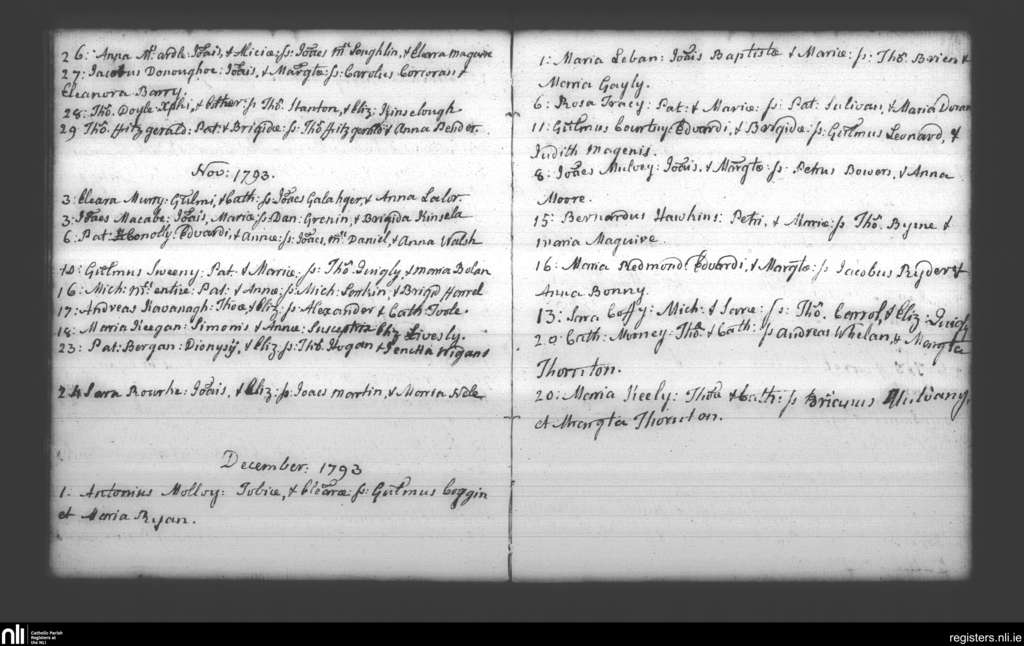 26: Anna Mc.ardle: Joãis, & Aliciæ: ſs: Joães Mc Loughlin, & Eleara Maguire
27: Jacobus Donoughoe: Joãis, & Margtæ: ſs: Carolus Corcoran &
Eleanora Barry.
28: Thõ. Doyle: Xphi, & Esther: ſs Thõ. Stanton, & Eliz: Kinselough
29 Thõ. Fitzgerald: Pat: & Brigidæ: ſs: Thõ. Fitzgerald & Anna Pender.
Nov: 1793.
3: Eleara Murry: Gũlmi, & Cath: ſs Joães Galahger, & Anna Lalor.
3: Joães Macabe: Joãis, Mariæ: ſs Dan: Grenin, & Brigida Kinsela
6: Pat: Conolly: Edvardi, & Annæ: ſs: Joães, Mc Daniel, & Anna Walsh
10: Gũlmus Sweeny: Pat: & Mariæ: ſs: Thõ. Quigly, & Maria Dolan
16: Mich: Mc.entire: Pat: & Annæ: ſs: Mich: Lorkin, & Brigd Harrel
17: Andreas Kavanagh: Thoæ, & Eliz: ſs: Alexander & Cath: Toole.
18: Maria Keegan: Simonis & Annæ: Susceptrix Eliz: Lively.
23: Pat: Bergan: Dionysÿ, & Eliz: ſs: Thõ. Hogan & Jenetta Wigans
24 Sara Rourke: Joãis, & Eliz: ſs: Joaes Martin, & Maria Hele
December: 1793
1. Antonius Molloy: Tobiæ, & Elearæ: ſs: Gũlmus Coggin
et Maria Ryan.
1: Maria Leban: Joãis Baptistæ & Mariæ: ſs: Thõ. Brien &
Maria Gayly.
6: Rosa Tracy: Pat: & Mariæ: ſs: Pat: Sulivan, & Maria Doran
11: Gũlmus Courtny: Edvardi, & Brigidæ: ſs: Gũlmus Leonard, &
Judith Magenis.
8: Joães Mulvey: Joãis, & Margtæ: ſs: Petrus Bowers, & Anna
Moore.
15: Bernardus Hawkins: Petri, & Mariæ: ſs Thõ. Byrne &
Maria Maguire.
16: Maria Redmond: Edvardi, & Margtæ: ſs Jacobus Ryder &
Anna Bonny.
13: Sara Coffy: Mich: & Saræ: ſs: Thõ. Carrol, & Eliz: Quigly
20: Cath: Murney: Thõ. & Cath: ſs Andreas Whelan, & Margta
Thornton.
20: Maria Keely: Thoæ & Cath: ſs
et Margta Thornton.
nli
Catholic Parish
Registers at
the NLI
registers.nli.ie